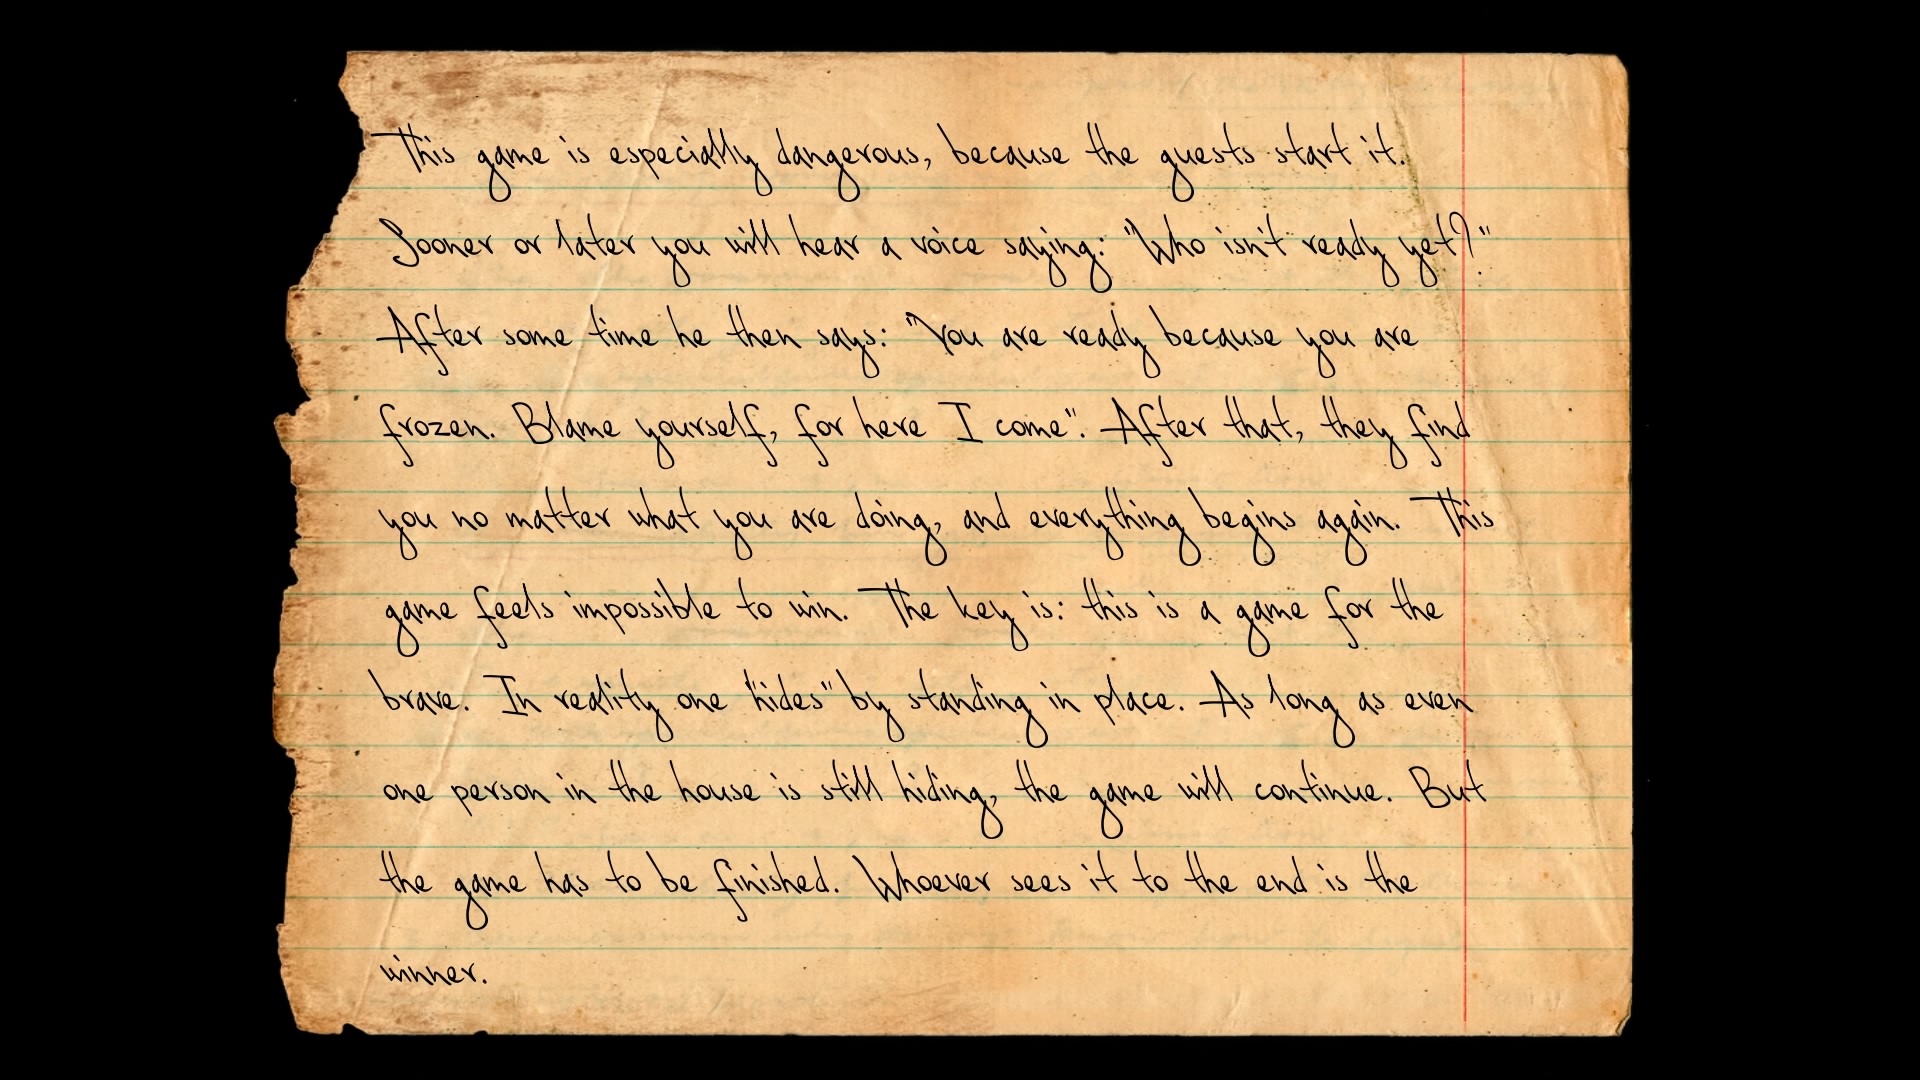 This game is especially dangerous, because the guests start it.
Sooner or later you will hear a voice saying: "Who isn't ready yet?"
After some time he then says: "You are ready because you are
frozen. Blame yourself, for here I come". After that, they find
you no matter what you are doing, and everything begins again. This
game feels impossible to win. The key is: this is a game for the
brave. In reality one "hides" by standing in place. As long as even
one person in the house is still hiding, the game will continue. But
the game has to be finished. Whoever sees it to the end is the
winner.